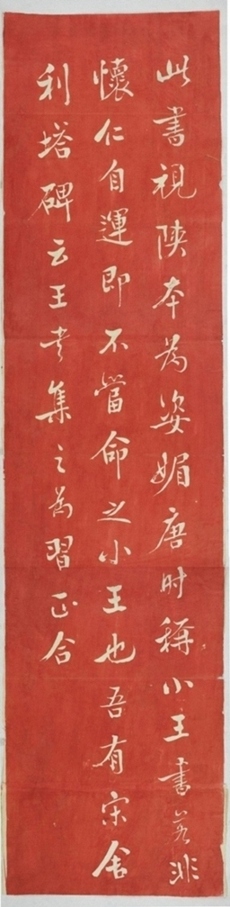 此書視陝本為姿媚唐时稱小王書若非
懷仁自運即不當命之小王也吾有宋舍
利塔碑云王書集之為習正合